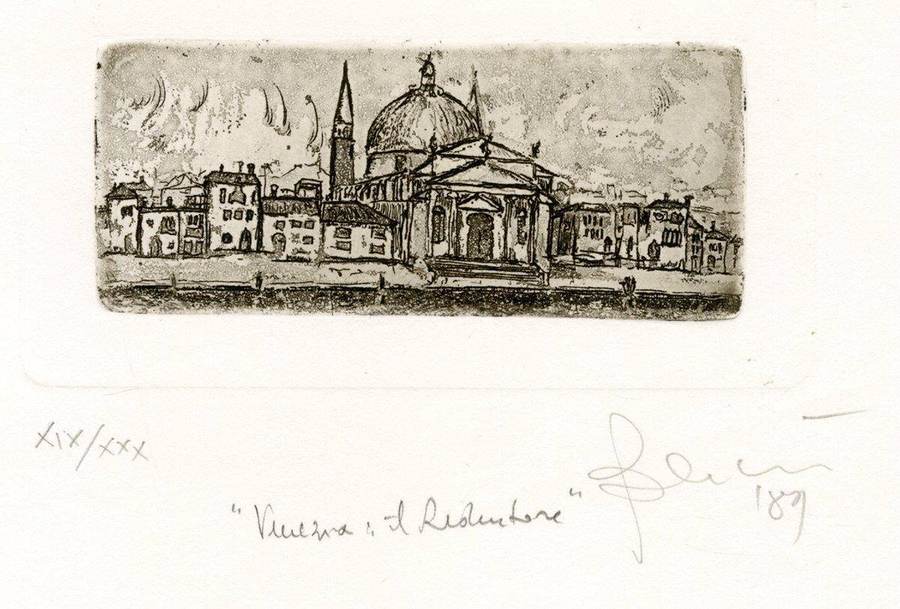 XIX/XXX
"Venezia: il Redentore"
'89